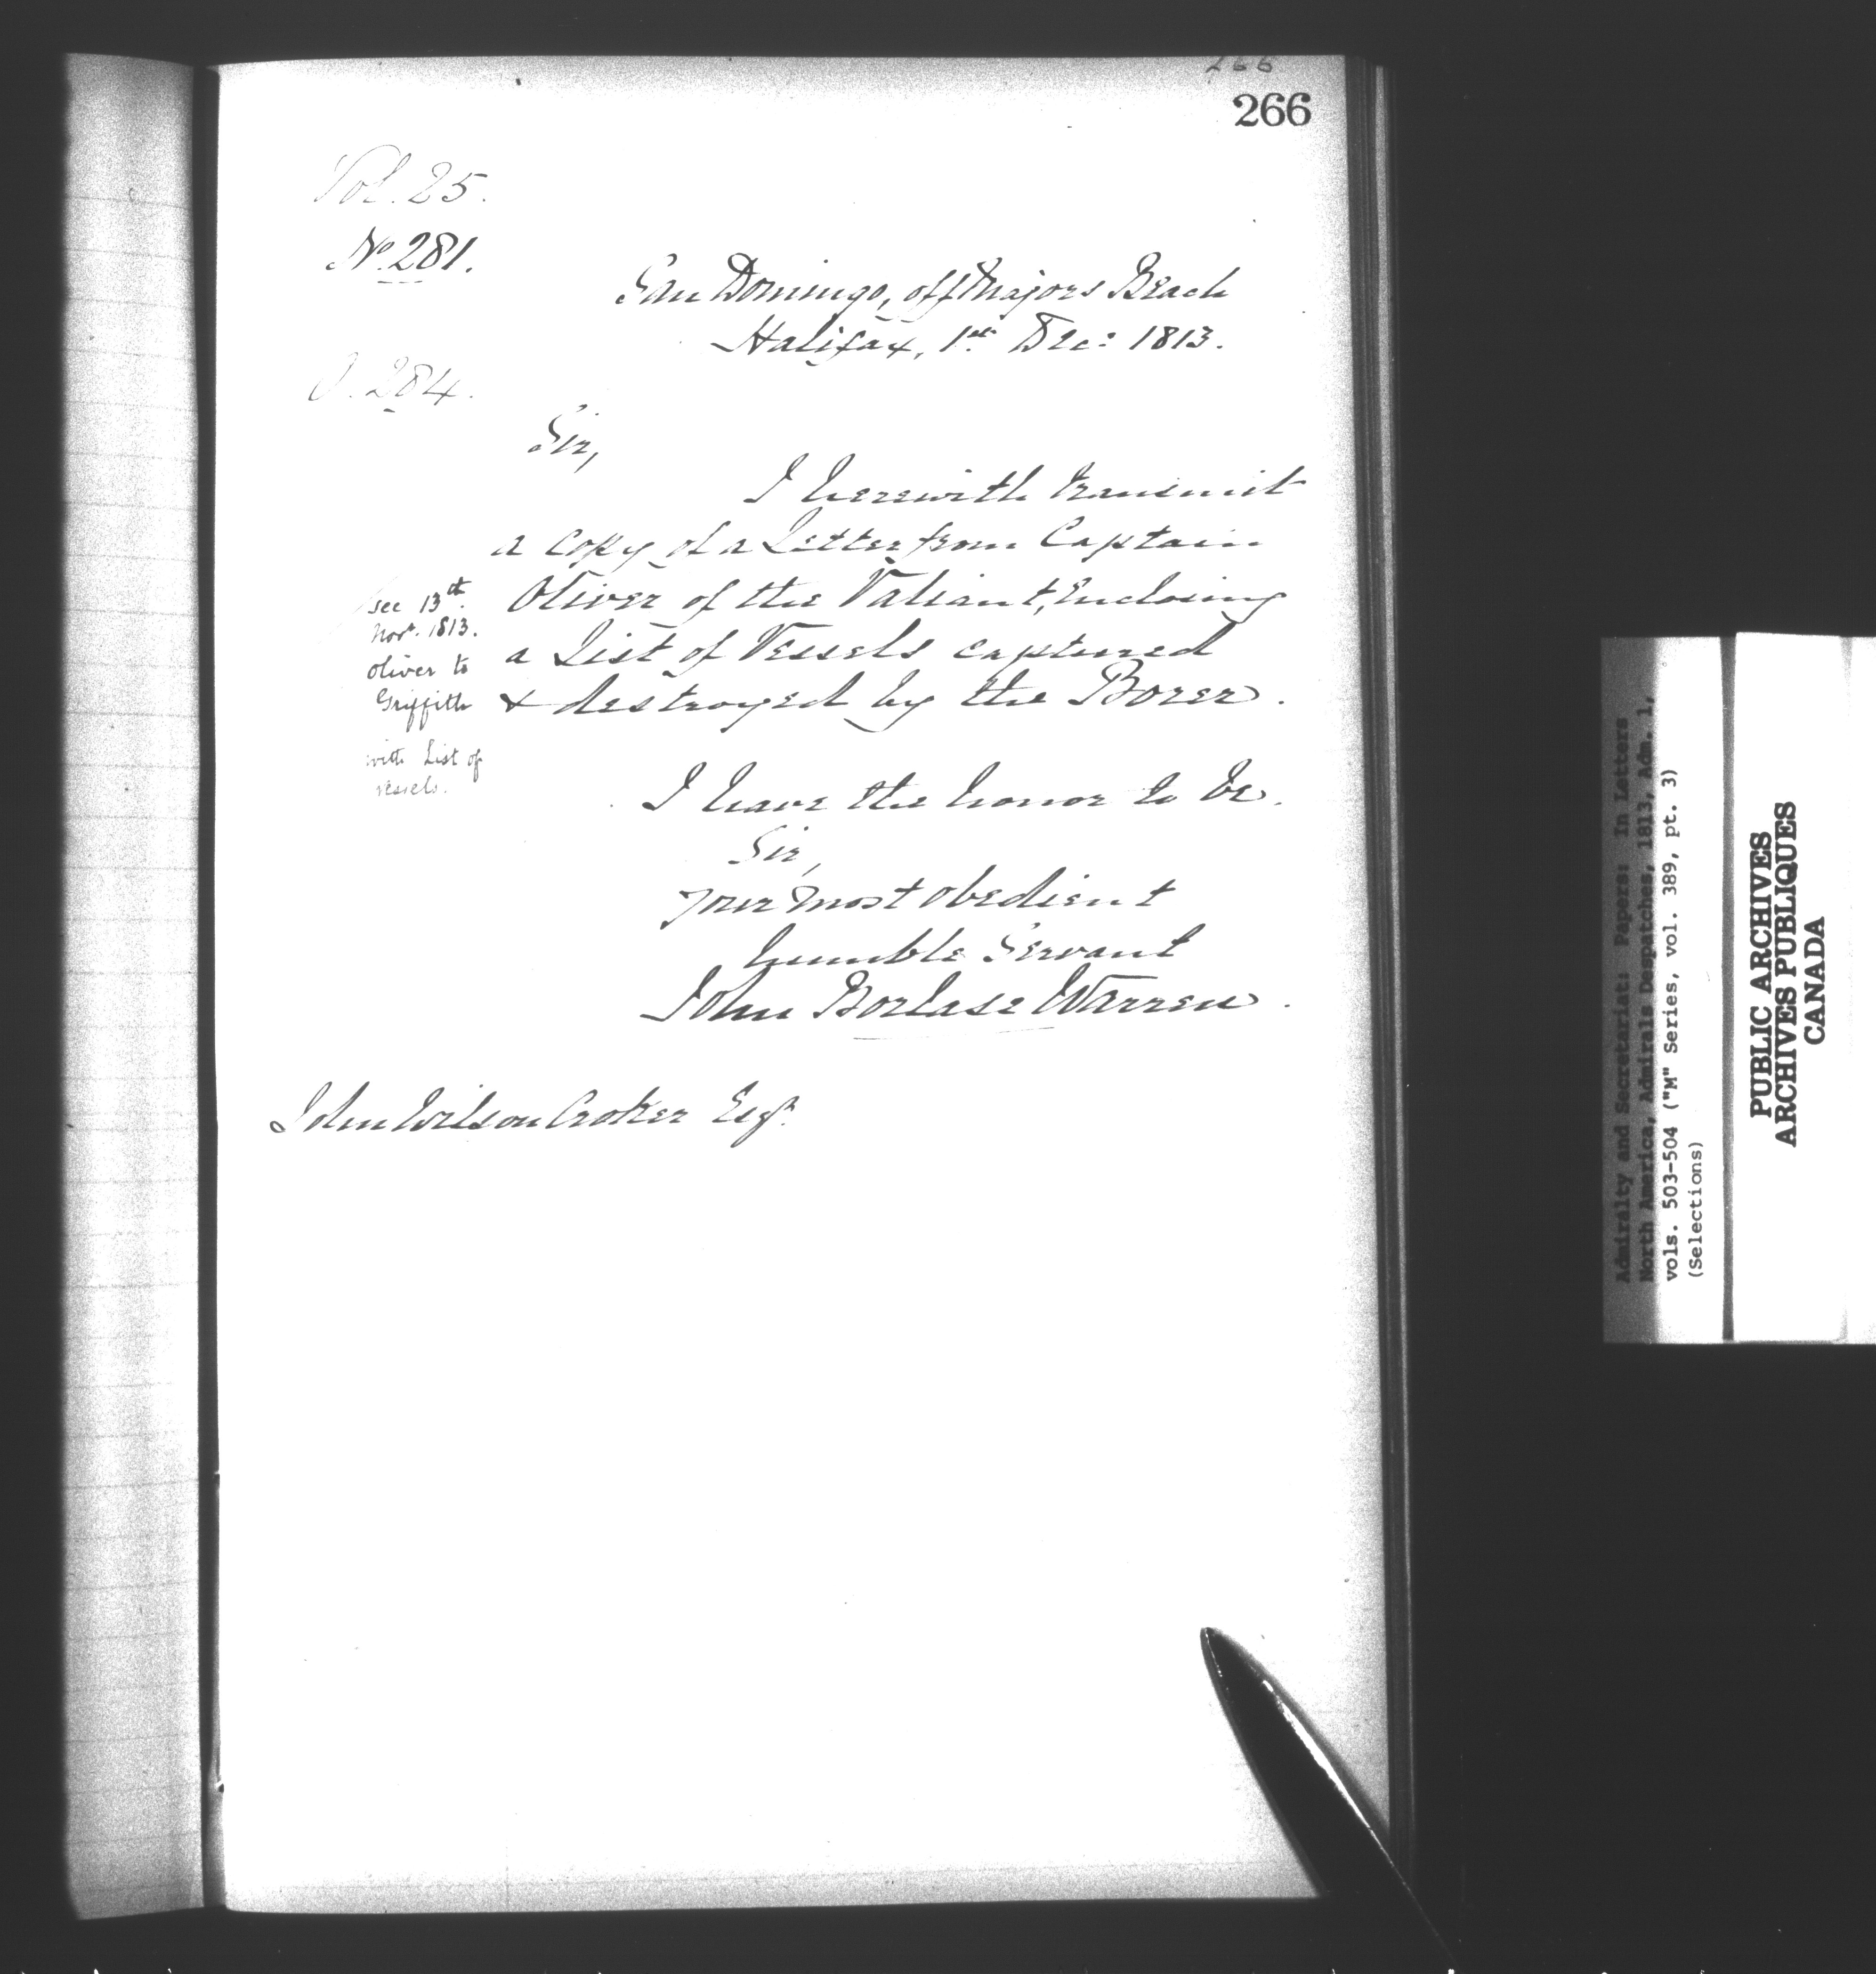 266
266
Vol. 25.
No. 281.
San Domingo, off Majors Beach
Halifax, 1st Dec: 1813.
284.
Sir,
I herewith transmit
a copy of a Letter from Captain
Oliver of the Valiant, Enclosing
a List of Vessels captured
& destroyed by the Borer.
see 13th
Novr. 1813.
Oliver to
Griffith
with List of
vessels.
I have the honor to be.
Sir,
your most obedient
humble Servant
John Borlase Warren.
John Wilson Croker Esqr.
Admiralty and Secretariat: Papers: In Letters
North America, Admirals Despatches, 1813, Adm. 1,
vols. 503-504 ("M" Series, vol. 389, pt. 3)
(Selections)
PUBLIC ARCHIVES
ARCHIVES PUBLIQUES
CANADA